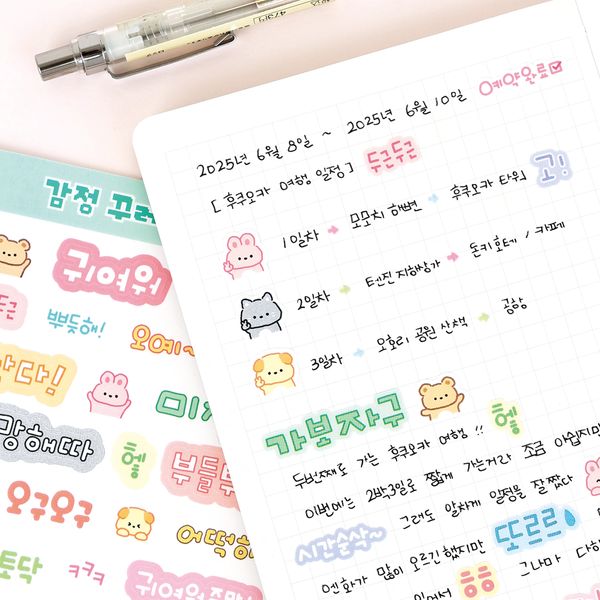 예약완료
2025년 6월 8일 ~ 2025년 6월 10일
[ 후쿠오카 여행 일정 ] 두근두근
1일차 모모치 해변 후쿠오카 타워 고!
2일차 텐진 지하상가 돈키호테 / 카페
3일차 오호리 공원 산책 공항
가보자구
두번째로 가는 후쿠오카 여행 !! 헿
이번에는 2박3일로 짧게 가는거라 조금 아쉽지만
시간순삭~ 그래도 알차게 일정을 잘 짰다
엔화가 많이 오르긴 했지만 또르르
그나마 다
있어서 ㅎㅎ
감정 꾸러
귀여워
두근
뿌듯해!
오예~
다!
미
망해따
헿
부들부
오구오구
어떡해
토닥
ㅋㅋㅋ
귀여워